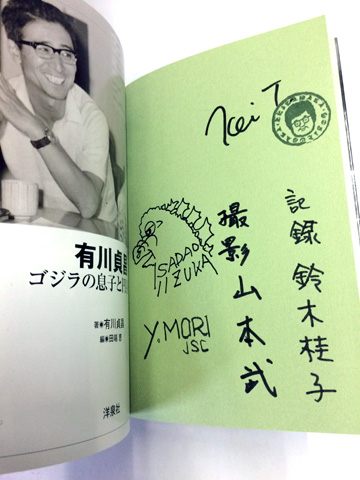 有川貞昌
ゴジラの息子と
著●有川貞昌
編●田端 恵
洋泉社
Kei T
SADAO
IIZUKA
Y. MORI
JSC
撮影 山本武
記録 鈴木桂子